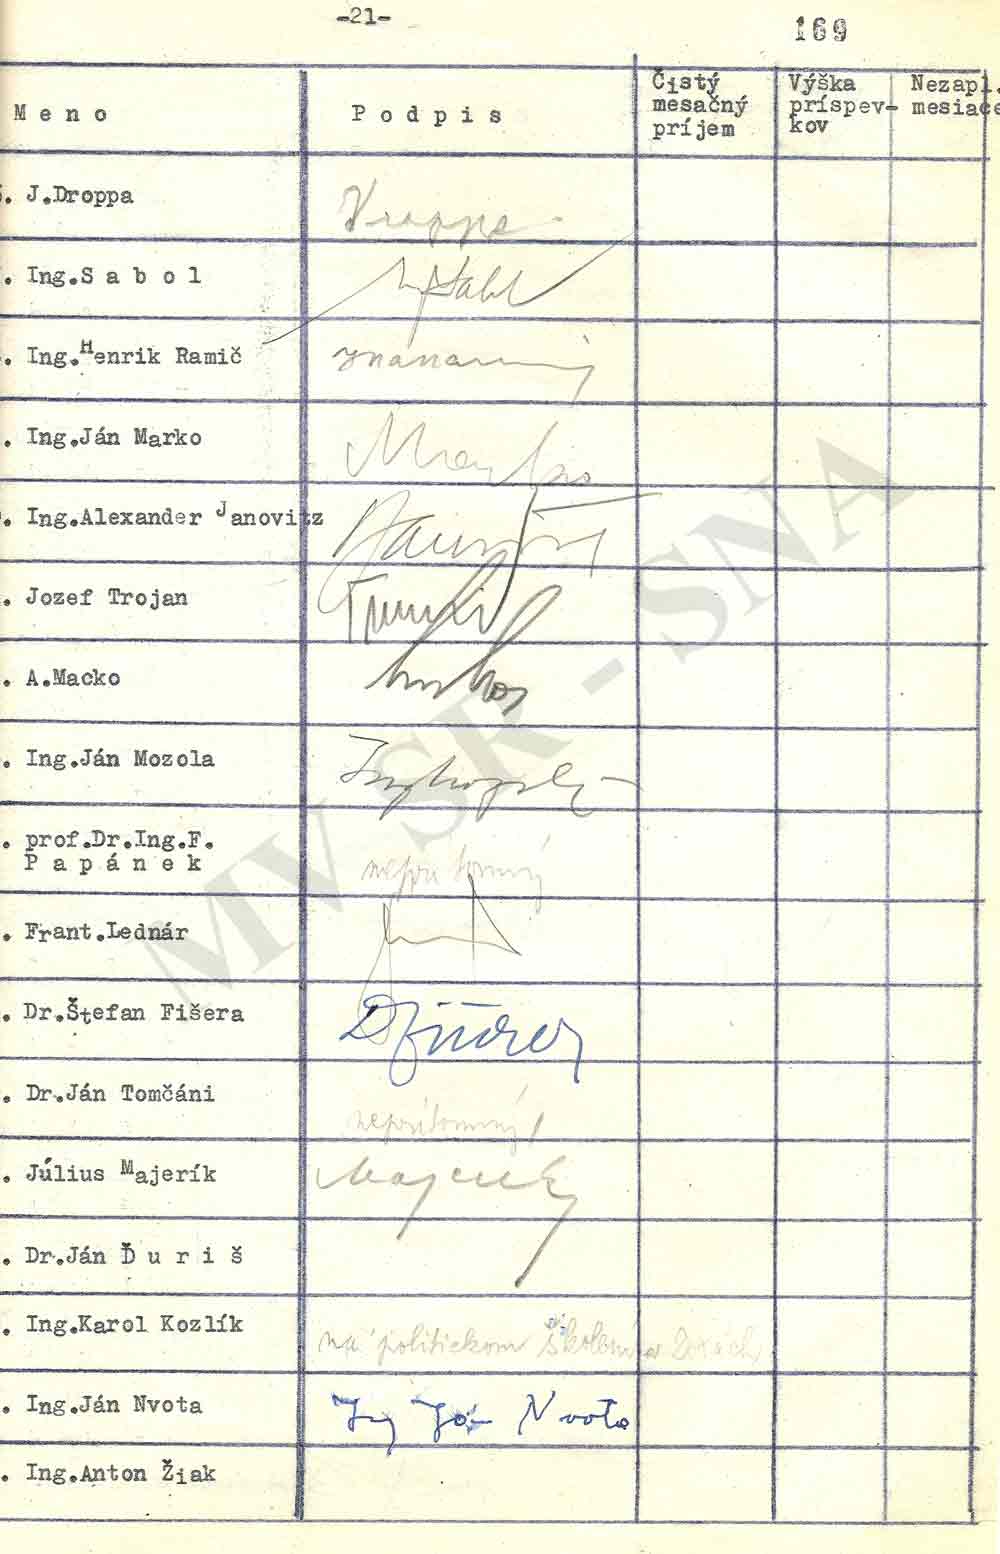 -21-
169
Meno Podpis Čistý mesačný príjem Výška príspev-kov Nezapl. mesiace
. J.Droppa Droppa
. Ing.Sabol
. Ing.Henrik Ramič
. Ing.Ján Marko Marko
. Ing.Alexander Janovitz
. Jozef Trojan
. A.Macko
. Ing.Ján Mozola
. prof.Dr.Ing.F.
Papánek neprítomný
. Frant.Lednár
. Dr.Štefan Fišera
. Dr.Ján Tomčáni neprítomný
. Július Majerík Majerík
. Dr.Ján Ďuriš
. Ing.Karol Kozlík na politickom školení v
. Ing.Ján Nvota Ing Ján Nvota
. Ing.Anton Žiak
MV SR - SNA